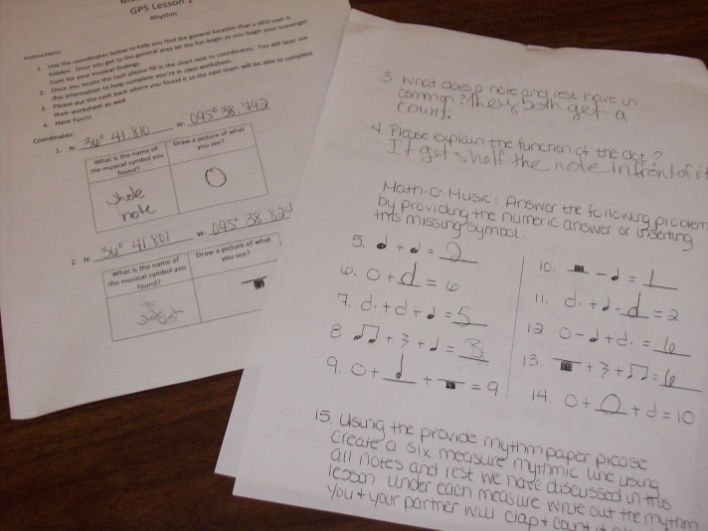 GPS Lesson 1
Rhythm
Instructions:
1. Use the coordinates below to help you find the general location that a GEO cash is
hidden. Once you get to the general area let the fun begin as you begin your scavenger
hunt for your musical findings.
2. Once you locate the cash please fill in the chart next to coordinates. You will later use
this information to help complete you're in class worksheet.
3. Please put the cash back where you found it so the next team will be able to complete
their worksheet as well.
4. Have Fun!!!
Coordinates:
1. N: 36° 41.810 W: 095° 38.792
What is the name of
the musical symbol you
found?
Draw a picture of what
you see?
whole
note
2. N: 36° 41.801 W: 095° 38.824
What is the name of
the musical symbol you
found?
Draw a picture of what
you see?
3. What does a note and rest have in
common? They both get a
count.
4. Please explain the function of the dot?
It gets half the note infront of it
Math-O-Music: Answer the following problem
by providing the numeric answer or inserting
the missing symbol.
5. ♩ + ♩ = 2
6. o + d = 6
7. d. + d + ♩ = 5
8. ♫ + 𝄽 + ♩ = 3
9. o + ♩ + ▬ = 9
10. ▬ - ♩ = 1
11. d. + ♩ - d = 2
12. o - ♩ + d. = 6
13. ▬ + 𝄽 + ♫ = 6
14. o + o + d = 10
15. Using the provide rhythm paper please
create a six measure rhythmic line using
all notes and rest we have discussed in this
lesson. Under each measure write out the rhythm
you + your partner will clap + count